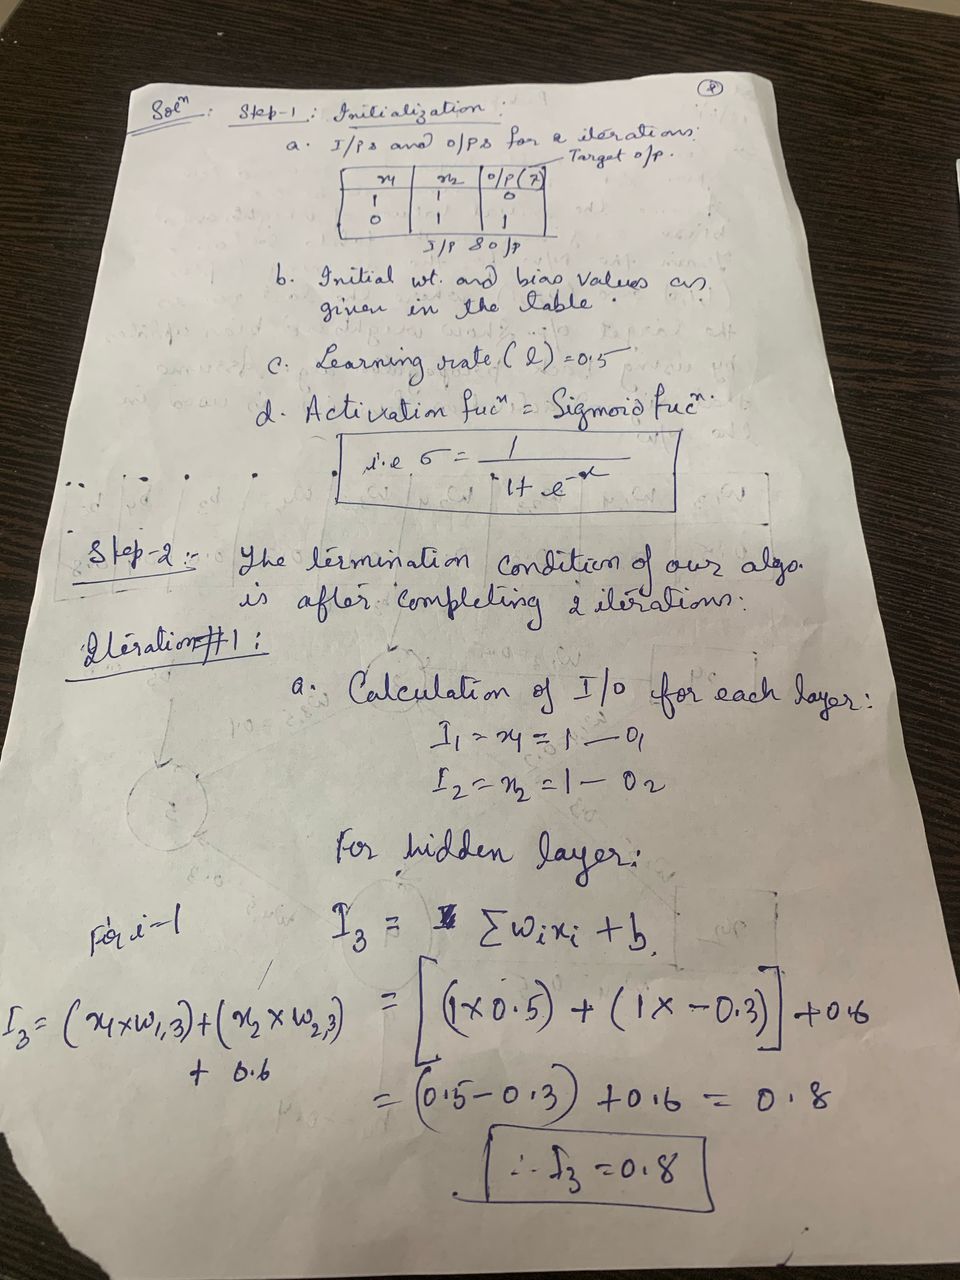 8
Solⁿ: Step-1: Initialization:
a. I/Ps and O/Ps for 2 iterations:
Target o/p.
x1 x2 O/P(T)
1 1 0
0 1 1
I/P & o/p
b. Initial wt. and bias values as
given in the table.
c. Learning rate (l) = 0.5
d. Activation fucⁿ = Sigmoid fucⁿ.
i.e σ = 1 / 1 + e^-x
Step-2:- The termination condition of our algo.
is after completing 2 iterations:
Iteration#1:
a. Calculation of I/O for each layer:
I₁ = x1 = 1 — O₁
I₂ = x₂ = 1 — O₂
For hidden layer:
For i=1 I₃ = Σwᵢxᵢ + b.
I₃ = (x1×w1,3)+(x₂×w₂,3) = [(1×0.5) + (1×-0.3)] + 0.6
+ 0.6
= (0.5-0.3) + 0.6 = 0.8
∴ I₃ = 0.8